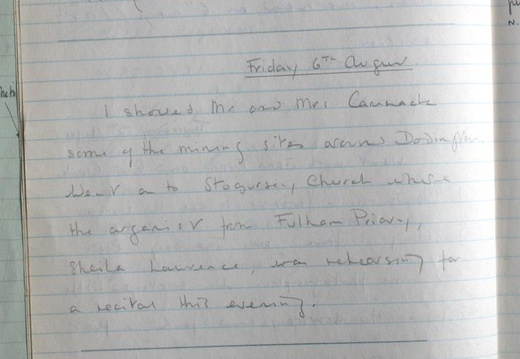 Friday 6TH August
I showed Mr and Mrs Cammack
some of the mining sites around Dodington.
Went on to Stogursey Church where
the organist from Fulham Priory,
Sheila Lawrence, was rehearsing for
a recital this evening.